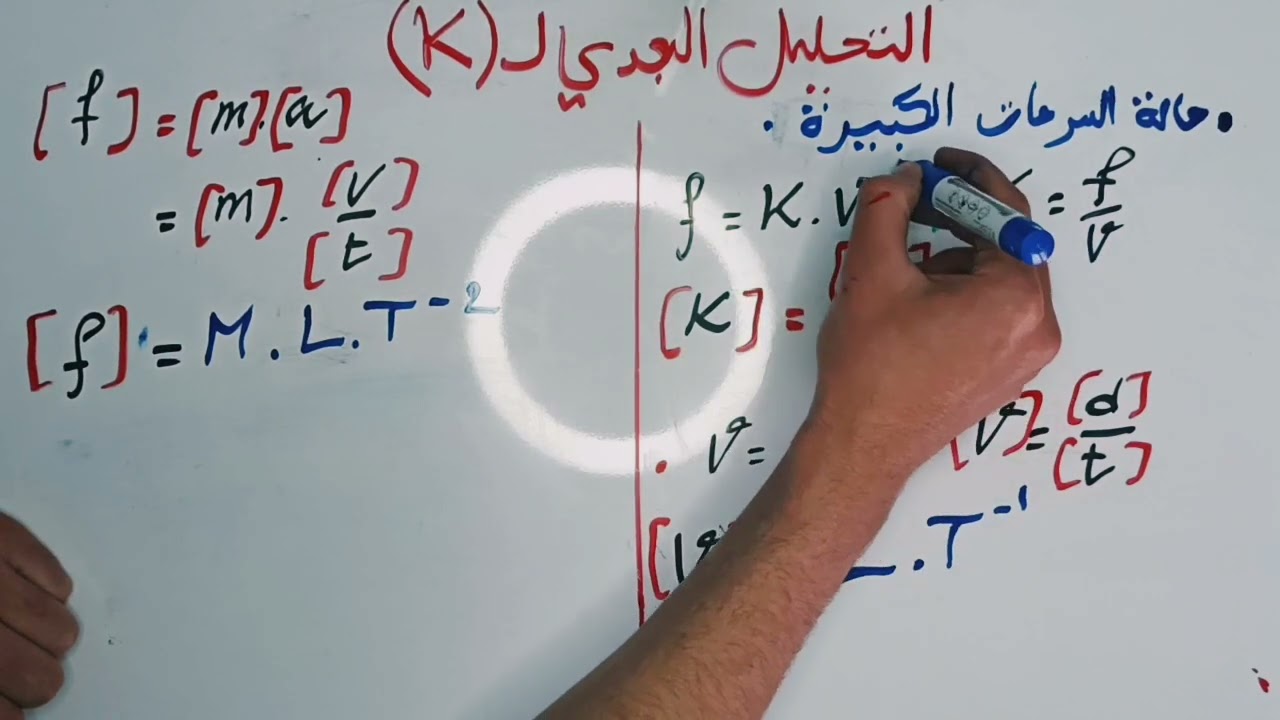 التحليل البعدي لـ (K)
• حالة السرعات الكبيرة .
f = K . V
= f/v
[K] =
• v =
[v] = [d]/[t]
[v
L . T⁻¹
[f] = [m].[a]
= [m] . [v]/[t]
[f] = M . L . T⁻²